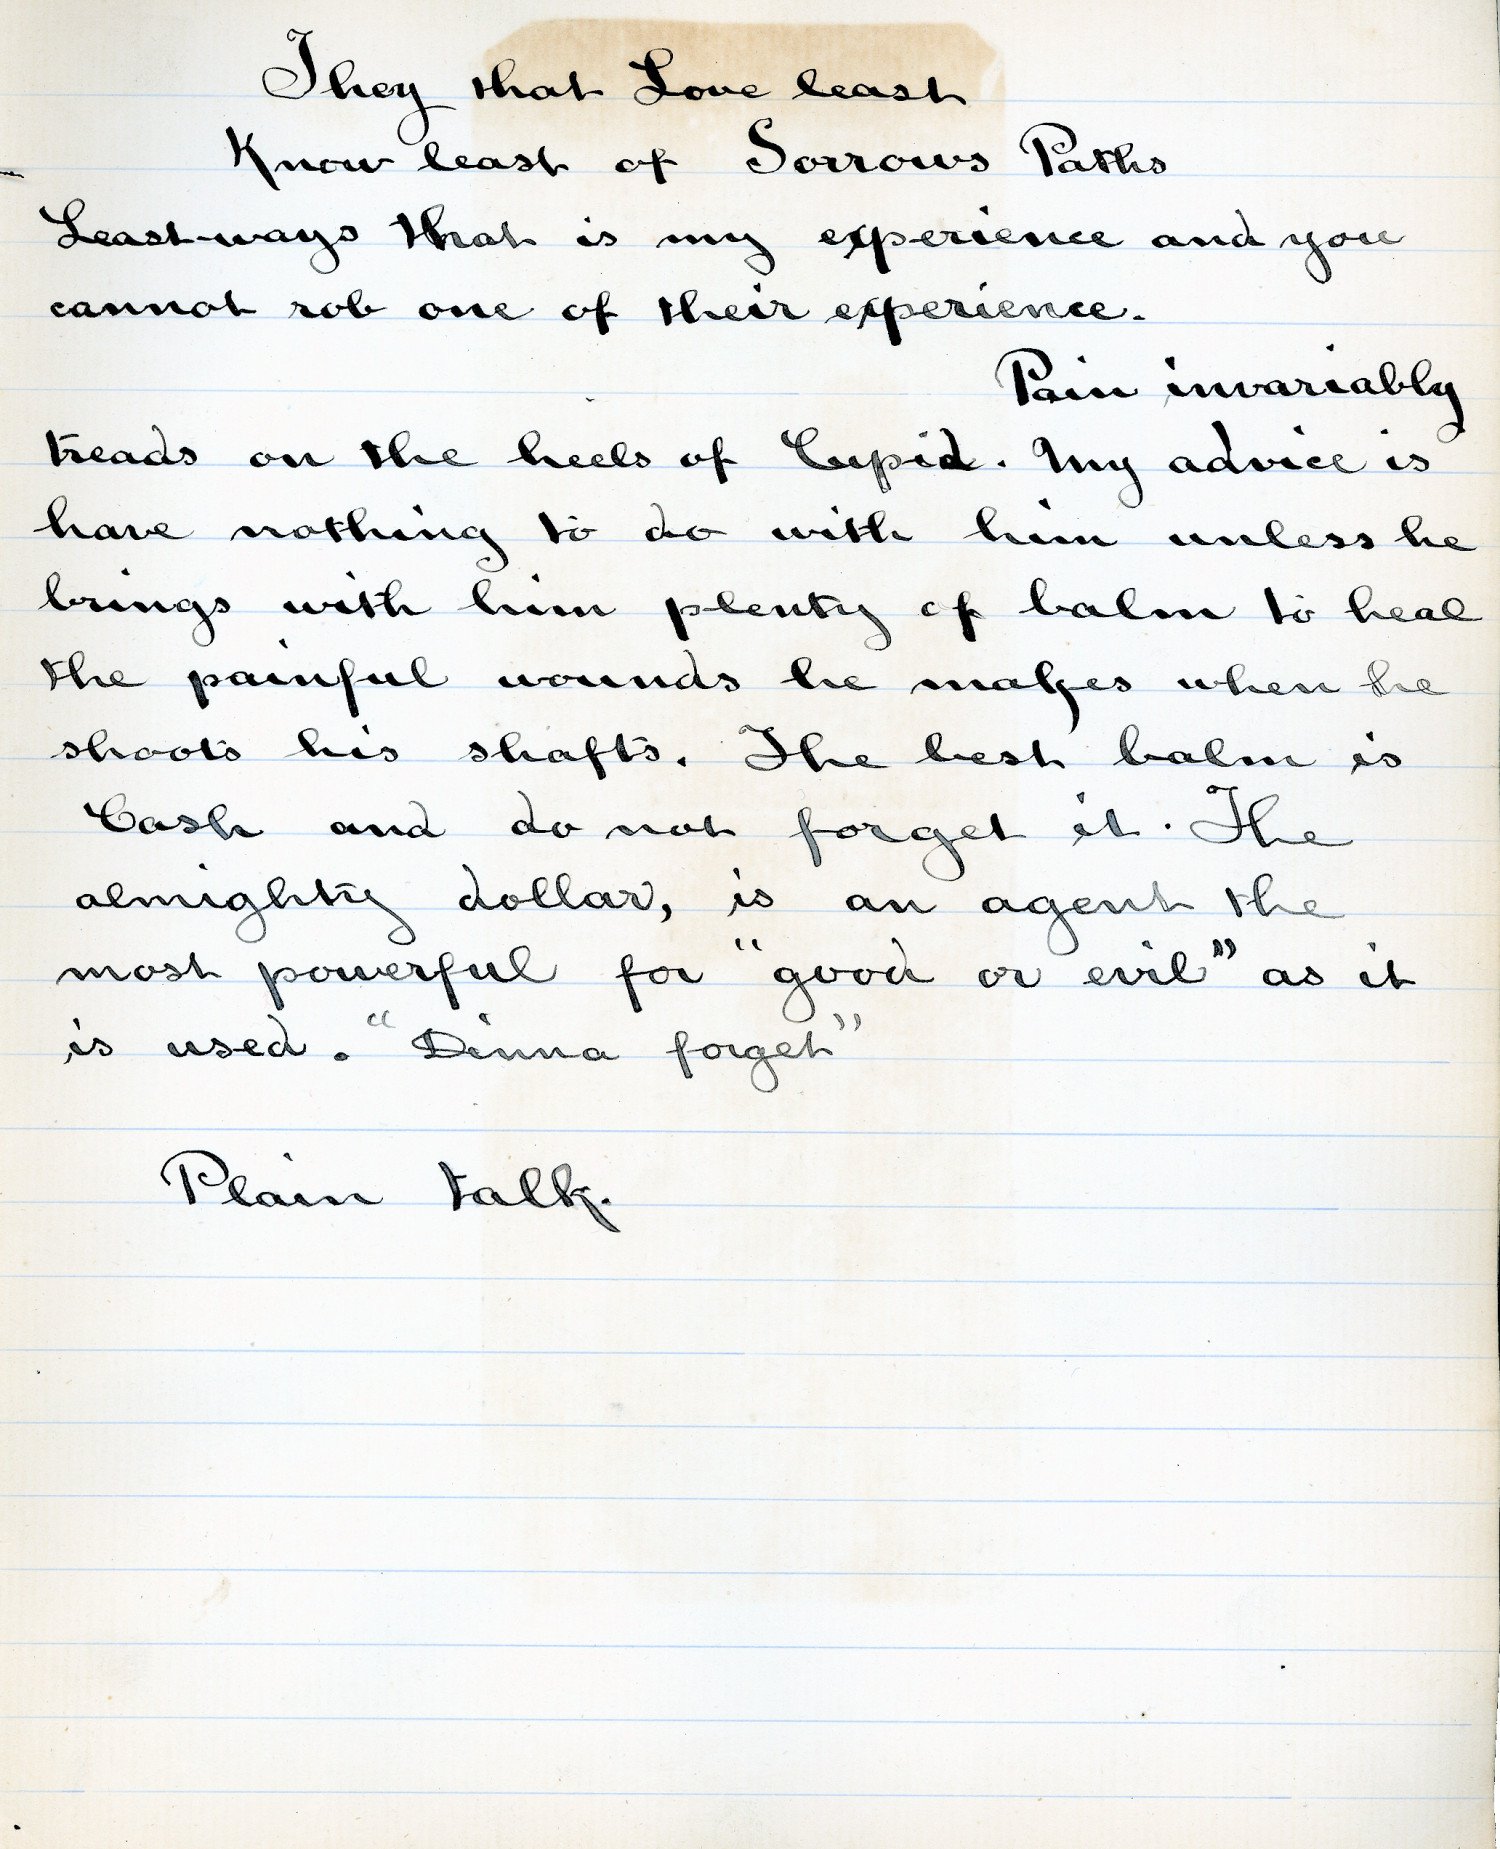 They that Love least
Know least of Sorrows Paths
Least-ways that is my experience and you
cannot rob one of their experience.
Pain invariably
treads on the heels of Cupid. My advice is
have nothing to do with him unless he
brings with him plenty of balm to heal
the painful wounds he makes when he
shoots his shafts. The best balm is
Cash and do not forget it. The
almighty dollar, is an agent the
most powerful for "good or evil" as it
is used. "Dinna forget"
Plain talk.